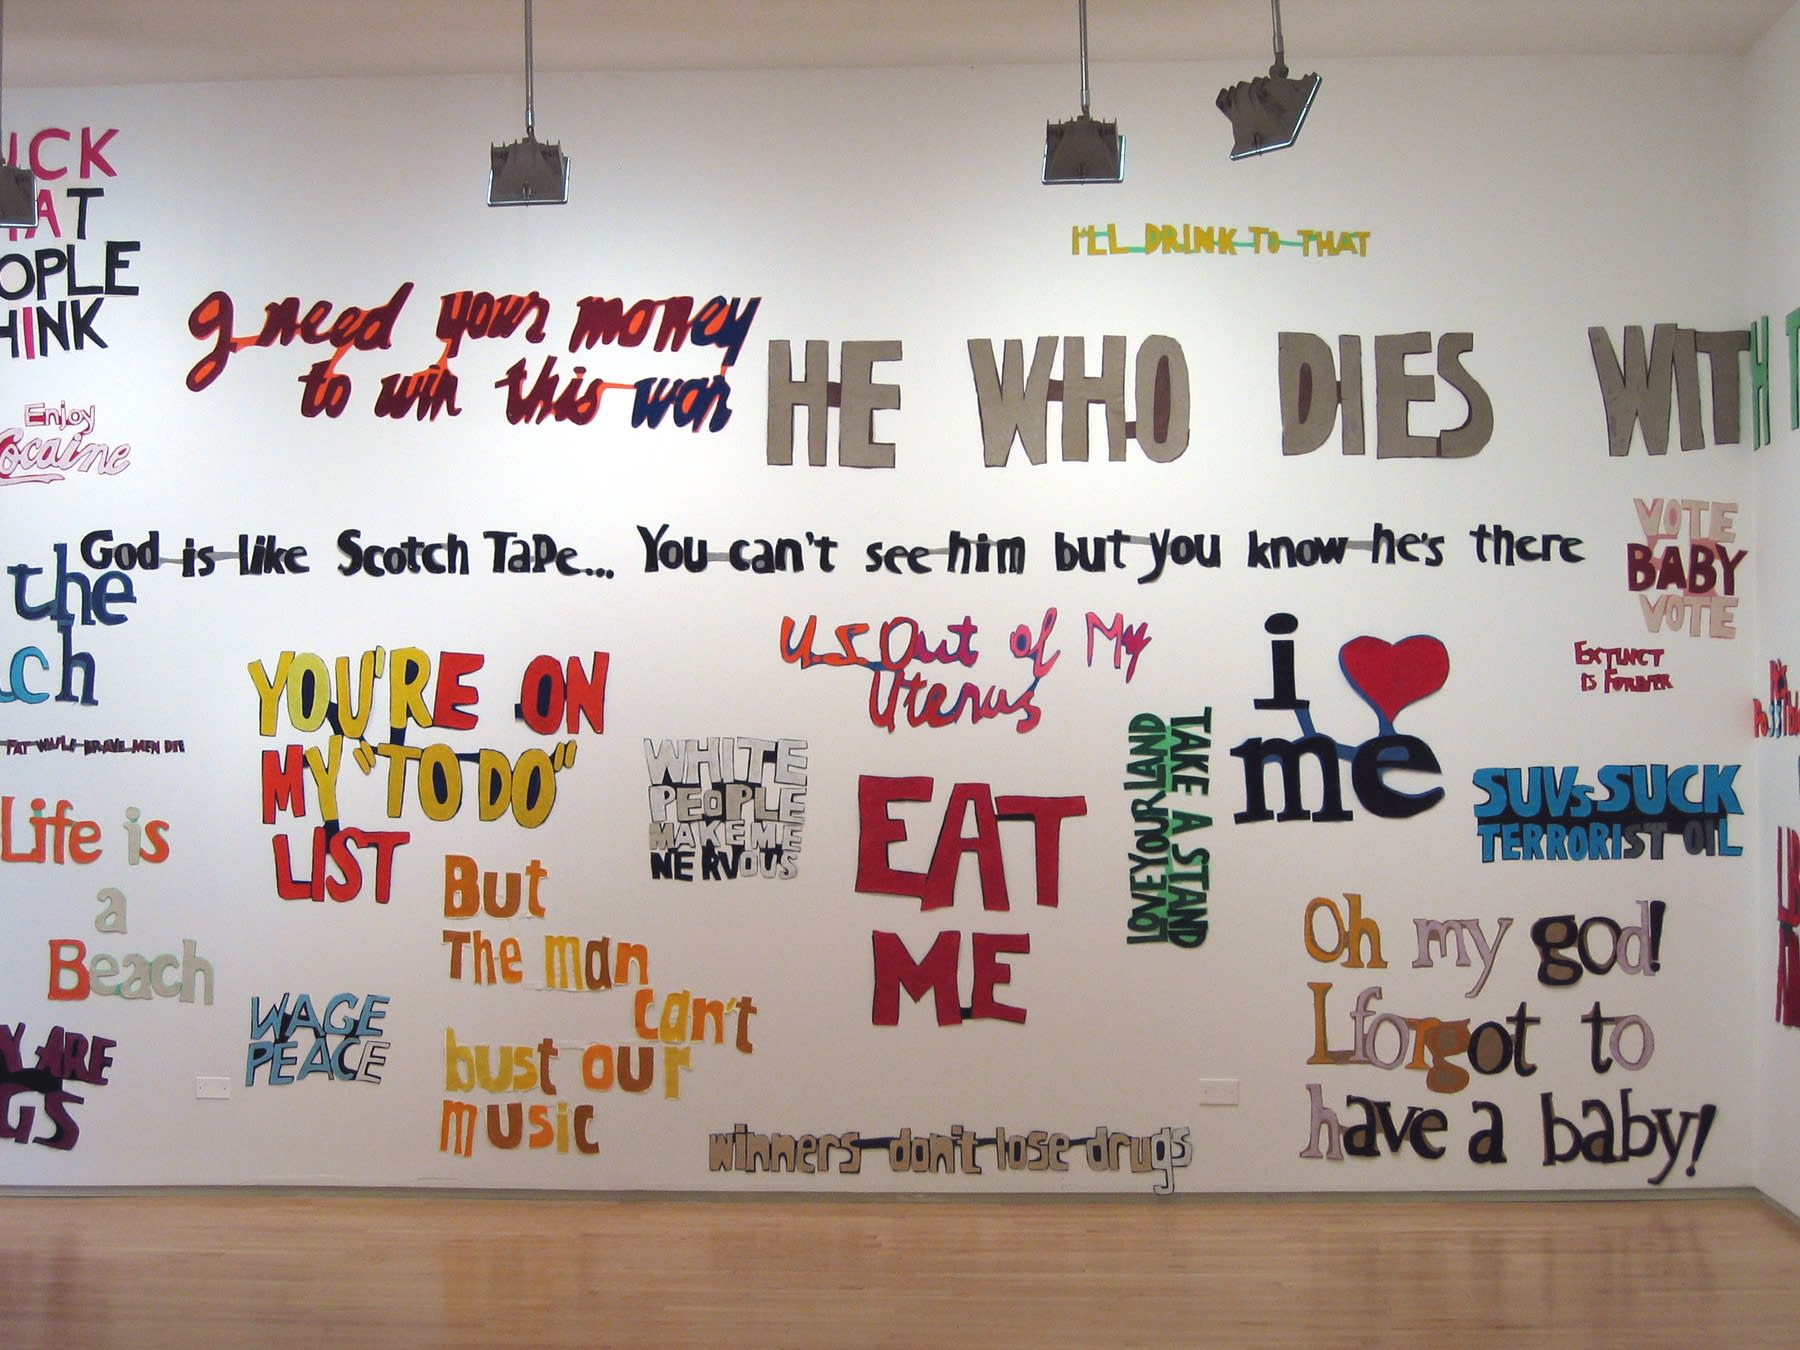 UCK
AT
OPLE
HINK
Enjoy
Cocaine
I need your money
to win this war
I'LL DRINK TO THAT
HE WHO DIES WITH T
God is like Scotch Tape... You can't see him but you know he's there
VOTE
BABY
VOTE
the
ch
FAT WHILE BRAVE MEN DIE
YOU'RE ON
MY "TO DO"
LIST
WHITE
PEOPLE
MAKE ME
NERVOUS
U.S. Out of My
Uterus
i ♥
me
EXTINCT
IS FOREVER
TAKE A STAND
LOVE YOUR LAND
SUVs SUCK
TERRORIST OIL
EAT
ME
Life is
a
Beach
But
The man
can't
bust our
music
WAGE
PEACE
ARE
GS
Oh my god!
I forgot to
have a baby!
winners don't lose drugs